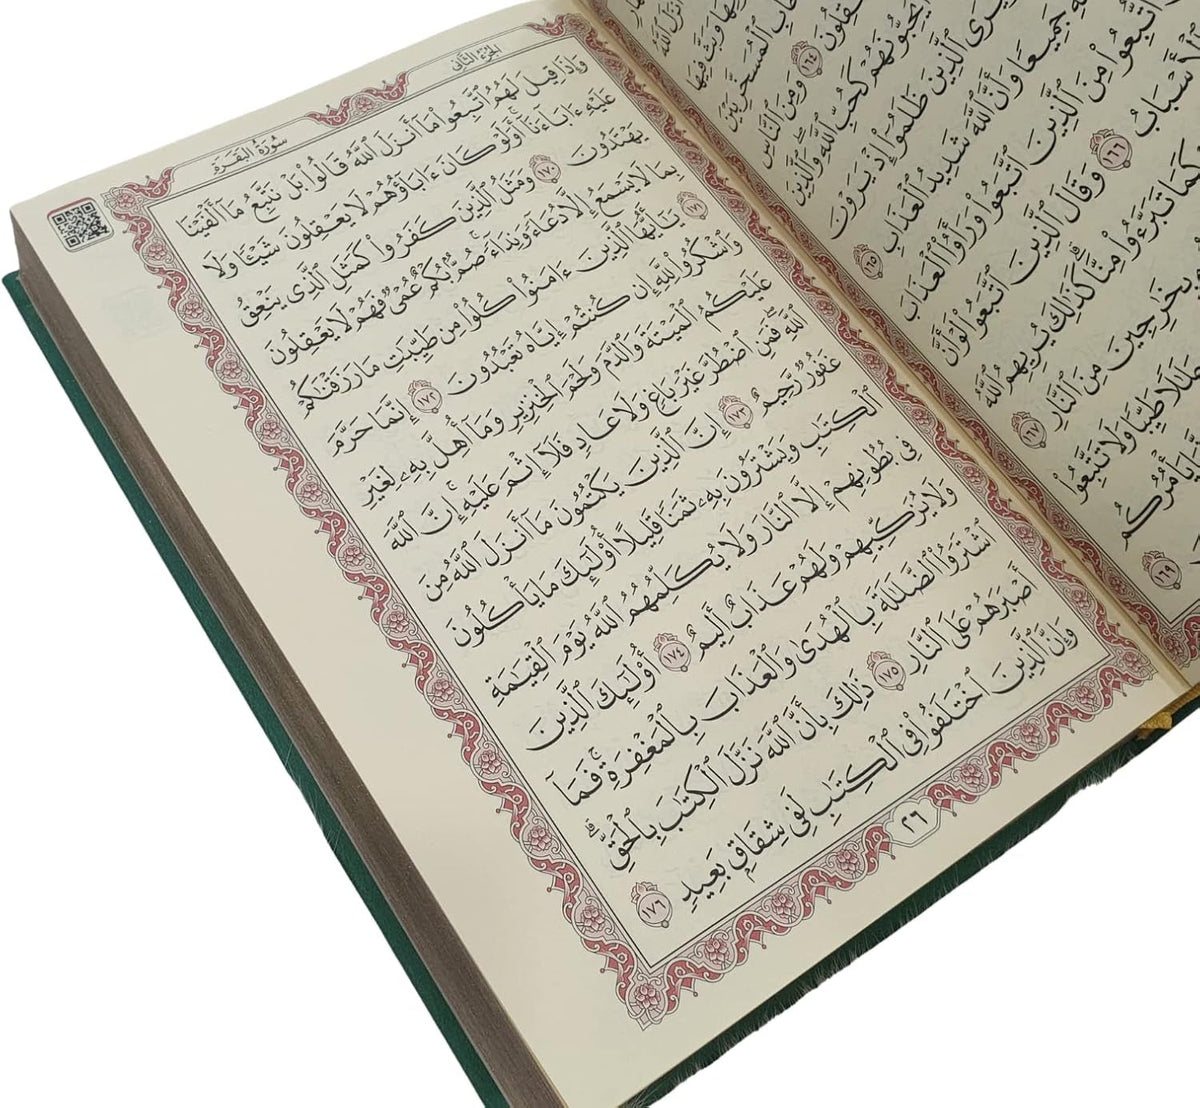 أَنزَلَ ٱللَّهُ
وَبَثَّ فِيهَا
ٱلْمُسَخَّرِ بَيْنَ
يَعْقِلُونَ ١٦٤ وَمِنَ ٱلنَّاسِ
يُحِبُّونَهُمْ كَحُبِّ ٱللَّهِ ۖ وَٱلَّذِينَ
يَرَى ٱلَّذِينَ ظَلَمُوٓا۟ إِذْ يَرَوْنَ
جَمِيعًا وَأَنَّ ٱللَّهَ شَدِيدُ ٱلْعَذَابِ ١٦٥
ٱتُّبِعُوا۟ مِنَ ٱلَّذِينَ ٱتَّبَعُوا۟ وَرَأَوُا۟ ٱلْعَذَابَ
ٱلْأَسْبَابُ ١٦٦ وَقَالَ ٱلَّذِينَ ٱتَّبَعُوا۟ لَوْ أَنَّ
كَمَا تَبَرَّءُوا۟ مِنَّا ۗ كَذَٰلِكَ يُرِيهِمُ ٱللَّهُ
بِخَٰرِجِينَ مِنَ ٱلنَّارِ ١٦٧
حَلَٰلًا طَيِّبًا وَلَا تَتَّبِعُوا۟
يَأْمُرُكُم
١٦٩
الجزء الثاني
سورة البقرة
وَإِذَا قِيلَ لَهُمُ ٱتَّبِعُوا۟ مَآ أَنزَلَ ٱللَّهُ قَالُوا۟ بَلْ نَتَّبِعُ مَآ أَلْفَيْنَا
عَلَيْهِ ءَابَآءَنَآ ۗ أَوَلَوْ كَانَ ءَابَآؤُهُمْ لَا يَعْقِلُونَ شَيْـًٔا وَلَا
يَهْتَدُونَ ١٧٠ وَمَثَلُ ٱلَّذِينَ كَفَرُوا۟ كَمَثَلِ ٱلَّذِى يَنْعِقُ
بِمَا لَا يَسْمَعُ إِلَّا دُعَآءً وَنِدَآءً ۚ صُمٌّۢ بُكْمٌ عُمْىٌ فَهُمْ لَا يَعْقِلُونَ
١٧١ يَٰٓأَيُّهَا ٱلَّذِينَ ءَامَنُوا۟ كُلُوا۟ مِن طَيِّبَٰتِ مَا رَزَقْنَٰكُمْ
وَٱشْكُرُوا۟ لِلَّهِ إِن كُنتُمْ إِيَّاهُ تَعْبُدُونَ ١٧٢ إِنَّمَا حَرَّمَ
عَلَيْكُمُ ٱلْمَيْتَةَ وَٱلدَّمَ وَلَحْمَ ٱلْخِنزِيرِ وَمَآ أُهِلَّ بِهِۦ لِغَيْرِ
ٱللَّهِ ۖ فَمَنِ ٱضْطُرَّ غَيْرَ بَاغٍ وَلَا عَادٍ فَلَآ إِثْمَ عَلَيْهِ ۚ إِنَّ ٱللَّهَ
غَفُورٌ رَّحِيمٌ ١٧٣ إِنَّ ٱلَّذِينَ يَكْتُمُونَ مَآ أَنزَلَ ٱللَّهُ مِنَ
ٱلْكِتَٰبِ وَيَشْتَرُونَ بِهِۦ ثَمَنًا قَلِيلًا ۙ أُو۟لَٰٓئِكَ مَا يَأْكُلُونَ
فِى بُطُونِهِمْ إِلَّا ٱلنَّارَ وَلَا يُكَلِّمُهُمُ ٱللَّهُ يَوْمَ ٱلْقِيَٰمَةِ
وَلَا يُزَكِّيهِمْ وَلَهُمْ عَذَابٌ أَلِيمٌ ١٧٤ أُو۟لَٰٓئِكَ ٱلَّذِينَ
ٱشْتَرَوُا۟ ٱلضَّلَٰلَةَ بِٱلْهُدَىٰ وَٱلْعَذَابَ بِٱلْمَغْفِرَةِ ۚ فَمَآ
أَصْبَرَهُمْ عَلَى ٱلنَّارِ ١٧٥ ذَٰلِكَ بِأَنَّ ٱللَّهَ نَزَّلَ ٱلْكِتَٰبَ بِٱلْحَقِّ ۗ
وَإِنَّ ٱلَّذِينَ ٱخْتَلَفُوا۟ فِى ٱلْكِتَٰبِ لَفِى شِقَاقٍۭ بَعِيدٍ ١٧٦
٢٦